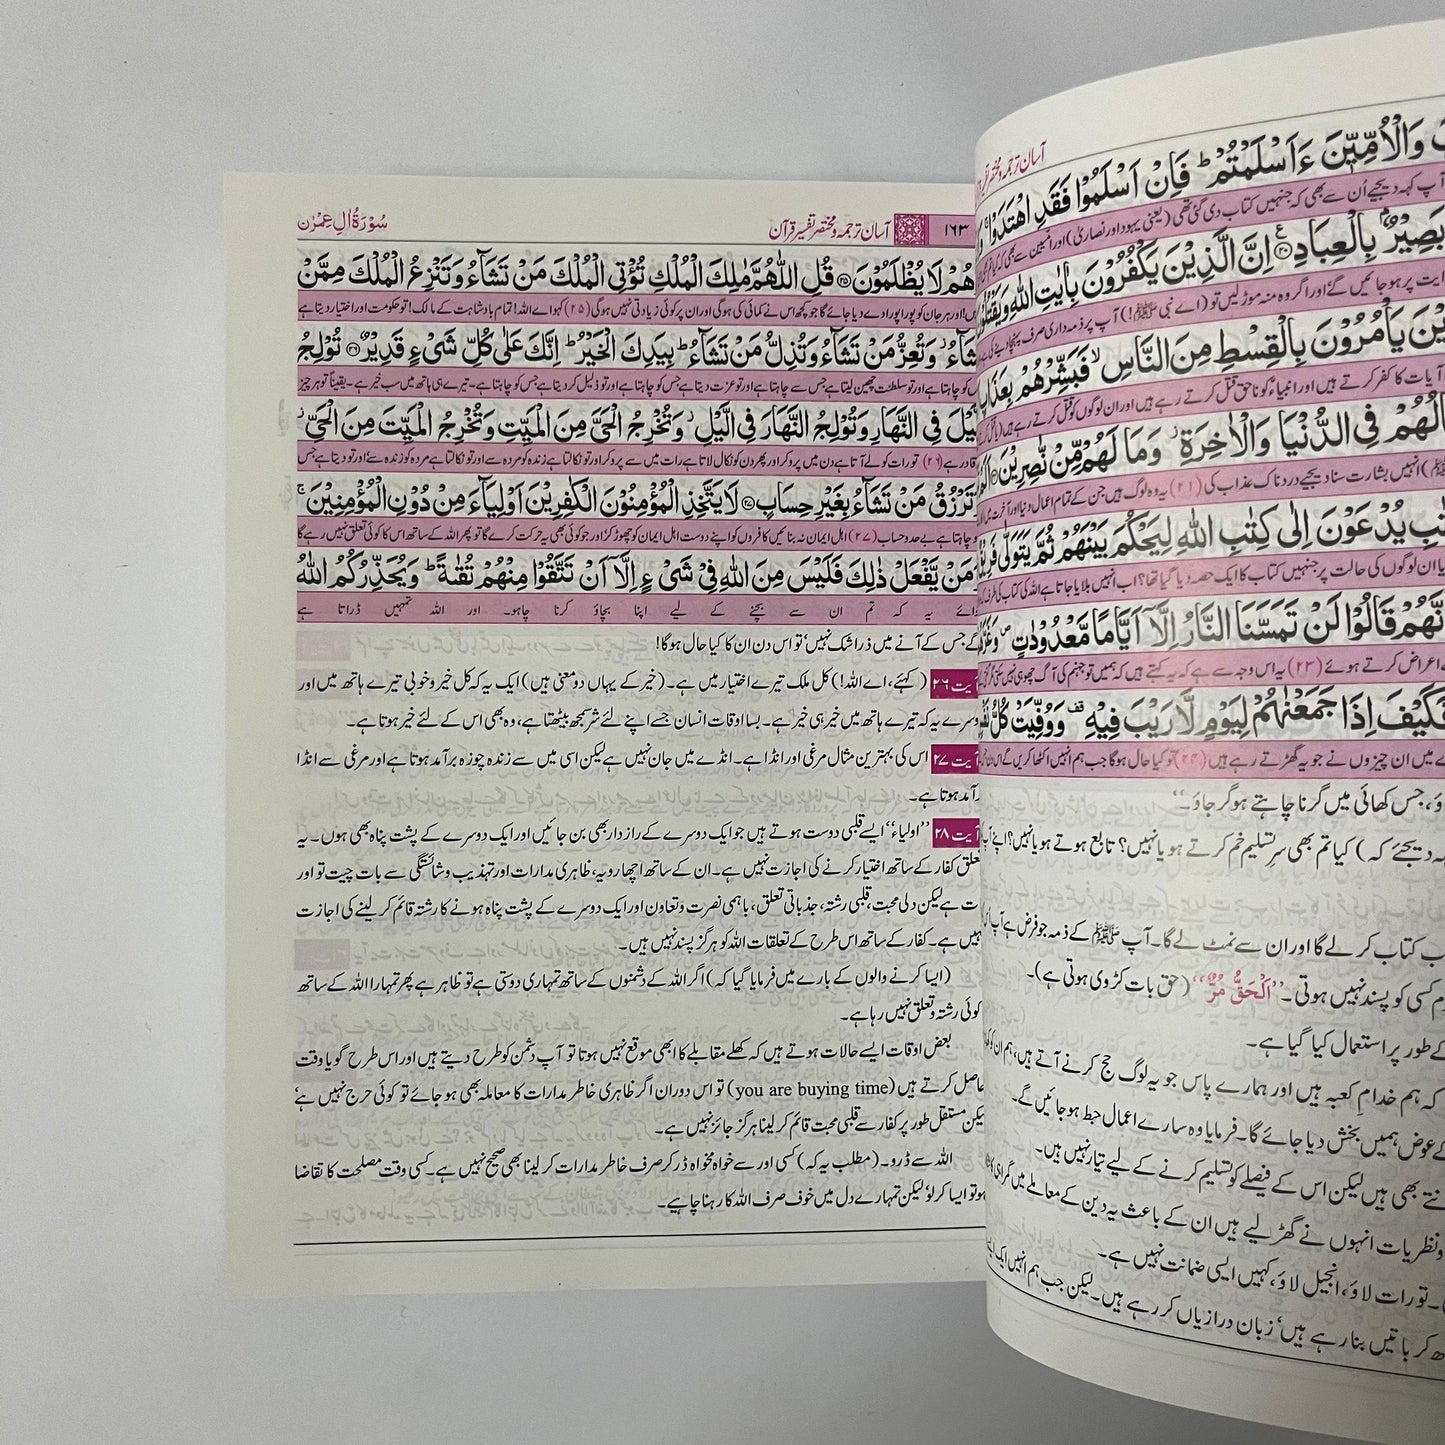 آسان ترجمہ و مختصر تفسیر
وَالْاُمِّیّٖنَ ءَاَسْلَمْتُمْ ؕ فَاِنْ اَسْلَمُوْا فَقَدِ اهْتَدَوْا ۚ
آپ کہہ دیجیے اُن سے بھی کہ جنہیں کتاب دی گئی تھی (یعنی یہود اور نصاریٰ) اور امیین سے بھی کہ کیا تم بھی
بَصِیْرٌۢ بِالْعِبَادِ ﴿۲۰﴾ اِنَّ الَّذِیْنَ یَكْفُرُوْنَ بِاٰیٰتِ اللّٰهِ وَیَقْتُلُوْنَ
ہدایت پر ہو جائیں گے اور اگر وہ منہ موڑ لیں تو (اے نبی ﷺ!) آپ پر ذمہ داری صرف پہنچا دینے کی ہے
یَاْمُرُوْنَ بِالْقِسْطِ مِنَ النَّاسِ ۙ فَبَشِّرْهُمْ بِعَذَابٍ
آیات کا کفر کرتے ہیں اور انبیاءؑ کو ناحق قتل کرتے رہے ہیں اور ان لوگوں کو قتل کرتے رہے ہیں
اَعْمَالُهُمْ فِی الدُّنْیَا وَالْاٰخِرَةِ ۫ وَمَا لَهُمْ مِّنْ نّٰصِرِیْنَ
انہیں بشارت سنا دیجیے دردناک عذاب کی (۲۱) یہ وہ لوگ ہیں جن کے تمام اعمال دنیا اور آخرت میں
یُدْعَوْنَ اِلٰی كِتٰبِ اللّٰهِ لِیَحْكُمَ بَیْنَهُمْ ثُمَّ یَتَوَلّٰی فَرِیْقٌ
ان لوگوں کی حالت پر جنہیں کتاب کا ایک حصہ دیا گیا تھا؟ اب انہیں بلایا جاتا ہے اللہ کی کتاب کی طرف
قَالُوْا لَنْ تَمَسَّنَا النَّارُ اِلَّاۤ اَیَّامًا مَّعْدُوْدٰتٍ ۪
اعراض کرتے ہوئے (۲۳) یہ اس وجہ سے ہے کہ یہ کہتے ہیں کہ ہمیں تو جہنم کی آگ چھو ہی نہیں سکتی
فَكَیْفَ اِذَا جَمَعْنٰهُمْ لِیَوْمٍ لَّا رَیْبَ فِیْهِ ۟ وَوُفِّیَتْ كُلُّ نَفْسٍ
میں ان چیزوں نے جو یہ گھڑتے رہے ہیں (۲۴) تو کیا حال ہوگا جب ہم انہیں اکٹھا کریں گے اس دن
جس کھائی میں گرنا چاہتے ہو گر جاؤ۔‘‘
دیجئے کہ) کیا تم بھی سرِ تسلیم خم کرتے ہو یا نہیں؟ تابع ہوتے ہو یا نہیں؟
کتاب کر لے گا اور ان سے نمٹ لے گا۔ آپ ﷺ کے ذمہ جو فرض ہے آپ
کسی کو پسند نہیں ہوتی۔ ’’اَلْحَقُّ مُرٌّ‘‘ (حق بات کڑوی ہوتی ہے)۔
کے طور پر استعمال کیا گیا ہے۔
کہ ہم خدامِ کعبہ ہیں اور ہمارے پاس جو یہ لوگ حج کرنے آتے ہیں، ہم ان کو
عوض ہمیں بخش دیا جائے گا۔ فرمایا وہ سارے اعمال حبط ہو جائیں گے۔
بھی ہیں لیکن اس کے فیصلے کو تسلیم کرنے کے لیے تیار نہیں ہیں۔
ونظریات انہوں نے گھڑ لیے ہیں ان کے باعث یہ دین کے معاملے میں گمراہی
تورات لاؤ، انجیل لاؤ، کہیں ایسی ضمانت نہیں ہے۔
کر باتیں بنا رہے ہیں، زبان درازیاں کر رہے ہیں۔ لیکن جب ہم انہیں ایک
۱۶۳ آسان ترجمہ و مختصر تفسیر قرآن سُوْرَةُ اٰلِ عِمْرٰن
هُمْ لَا یُظْلَمُوْنَ ﴿۲۵﴾ قُلِ اللّٰهُمَّ مٰلِكَ الْمُلْكِ تُؤْتِی الْمُلْكَ مَنْ تَشَآءُ وَتَنْزِعُ الْمُلْكَ مِمَّنْ
اور ہر جان کو پورا پورا دے دیا جائے گا جو کچھ اس نے کمائی کی ہوگی اور ان پر کوئی زیادتی نہیں ہوگی (۲۵) کہو اے اللہ! تمام بادشاہت کے مالک! تو حکومت اور اختیار دیتا ہے
تَشَآءُ ۫ وَتُعِزُّ مَنْ تَشَآءُ وَتُذِلُّ مَنْ تَشَآءُ ؕ بِیَدِكَ الْخَیْرُ ؕ اِنَّكَ عَلٰی كُلِّ شَیْءٍ قَدِیْرٌ ﴿۲۶﴾ تُوْلِجُ
جس کو چاہتا ہے اور تو سلطنت چھین لیتا ہے جس سے چاہتا ہے اور تو عزت دیتا ہے جس کو چاہتا ہے اور تو ذلیل کر دیتا ہے جس کو چاہتا ہے۔ تیرے ہی ہاتھ میں سب خیر ہے۔ یقیناً تو ہر چیز
الَّیْلَ فِی النَّهَارِ وَتُوْلِجُ النَّهَارَ فِی الَّیْلِ ۫ وَتُخْرِجُ الْحَیَّ مِنَ الْمَیِّتِ وَتُخْرِجُ الْمَیِّتَ مِنَ الْحَیِّ ۫
قادر ہے (۲۶) تو رات کو لے آتا ہے دن میں پرو کر اور پھر دن کو نکال لاتا ہے رات میں سے پرو کر اور تو نکالتا ہے زندہ کو مردہ سے اور تو نکالتا ہے مردہ کو زندہ سے اور تو دیتا ہے جس
وَتَرْزُقُ مَنْ تَشَآءُ بِغَیْرِ حِسَابٍ ﴿۲۷﴾ لَا یَتَّخِذِ الْمُؤْمِنُوْنَ الْكٰفِرِیْنَ اَوْلِیَآءَ مِنْ دُوْنِ الْمُؤْمِنِیْنَ ۚ
کو چاہتا ہے بے حد و حساب (۲۷) اہل ایمان نہ بنائیں کافروں کو اپنے دوست اہل ایمان کو چھوڑ کر اور جو کوئی بھی یہ حرکت کرے گا تو پھر اللہ کے ساتھ اس کا کوئی تعلق نہیں رہے گا
وَمَنْ یَّفْعَلْ ذٰلِكَ فَلَیْسَ مِنَ اللّٰهِ فِیْ شَیْءٍ اِلَّاۤ اَنْ تَتَّقُوْا مِنْهُمْ تُقٰىةً ؕ وَیُحَذِّرُكُمُ اللّٰهُ
سوائے یہ کہ تم ان سے بچنے کے لیے اپنا بچاؤ کرنا چاہو۔ اور اللہ تمہیں ڈراتا ہے
گے جس کے آنے میں ذرا شک نہیں، تو اس دن ان کا کیا حال ہوگا!
آیت ۲۶ (کہئے، اے اللہ!) کل ملک تیرے اختیار میں ہے۔ (خیر کے یہاں دو معنی ہیں) ایک یہ کہ کل خیر و خوبی تیرے ہاتھ میں اور
دوسرے یہ کہ تیرے ہاتھ میں خیر ہی خیر ہے۔ بسا اوقات انسان جسے اپنے لئے شر سمجھ بیٹھتا ہے، وہ بھی اس کے لئے خیر ہوتا ہے۔
آیت ۲۷ اس کی بہترین مثال مرغی اور انڈا ہے۔ انڈے میں جان نہیں ہے لیکن اسی میں سے زندہ چوزہ برآمد ہوتا ہے اور مرغی سے انڈا
برآمد ہوتا ہے۔
آیت ۲۸ ’’اولیاء‘‘ ایسے قلبی دوست ہوتے ہیں جو ایک دوسرے کے رازدار بھی بن جائیں اور ایک دوسرے کے پشت پناہ بھی ہوں۔ یہ
تعلق کفار کے ساتھ اختیار کرنے کی اجازت نہیں ہے۔ ان کے ساتھ اچھا رویہ، ظاہری مدارات اور تہذیب و شائستگی سے بات چیت تو اور
بات ہے لیکن دلی محبت، قلبی رشتہ، جذباتی تعلق، باہمی نصرت و تعاون اور ایک دوسرے کے پشت پناہ ہونے کا رشتہ قائم کر لینے کی اجازت
نہیں ہے۔ کفار کے ساتھ اس طرح کے تعلقات اللہ کو ہرگز پسند نہیں ہیں۔
(ایسا کرنے والوں کے بارے میں فرمایا گیا کہ) اگر اللہ کے دشمنوں کے ساتھ تمہاری دوستی ہے تو ظاہر ہے پھر تمہارا اللہ کے ساتھ
کوئی رشتہ و تعلق نہیں رہا ہے۔
بعض اوقات ایسے حالات ہوتے ہیں کہ کھلے مقابلے کا ابھی موقع نہیں ہوتا تو آپ دشمن کو طرح دیتے ہیں اور اس طرح گویا وقت
حاصل کرتے ہیں (you are buying time) تو اس دوران اگر ظاہری خاطر مدارات کا معاملہ بھی ہو جائے تو کوئی حرج نہیں ہے،
لیکن مستقل طور پر کفار سے قلبی محبت قائم کر لینا ہرگز جائز نہیں ہے۔
اللہ سے ڈرو۔ (مطلب یہ کہ) کسی اور سے خواہ مخواہ ڈر کر صرف خاطر مدارات کر لینا بھی صحیح نہیں ہے۔ کسی وقت مصلحت کا تقاضا
ہو تو ایسا کر لو، لیکن تمہارے دل میں خوف صرف اللہ کا رہنا چاہیے۔